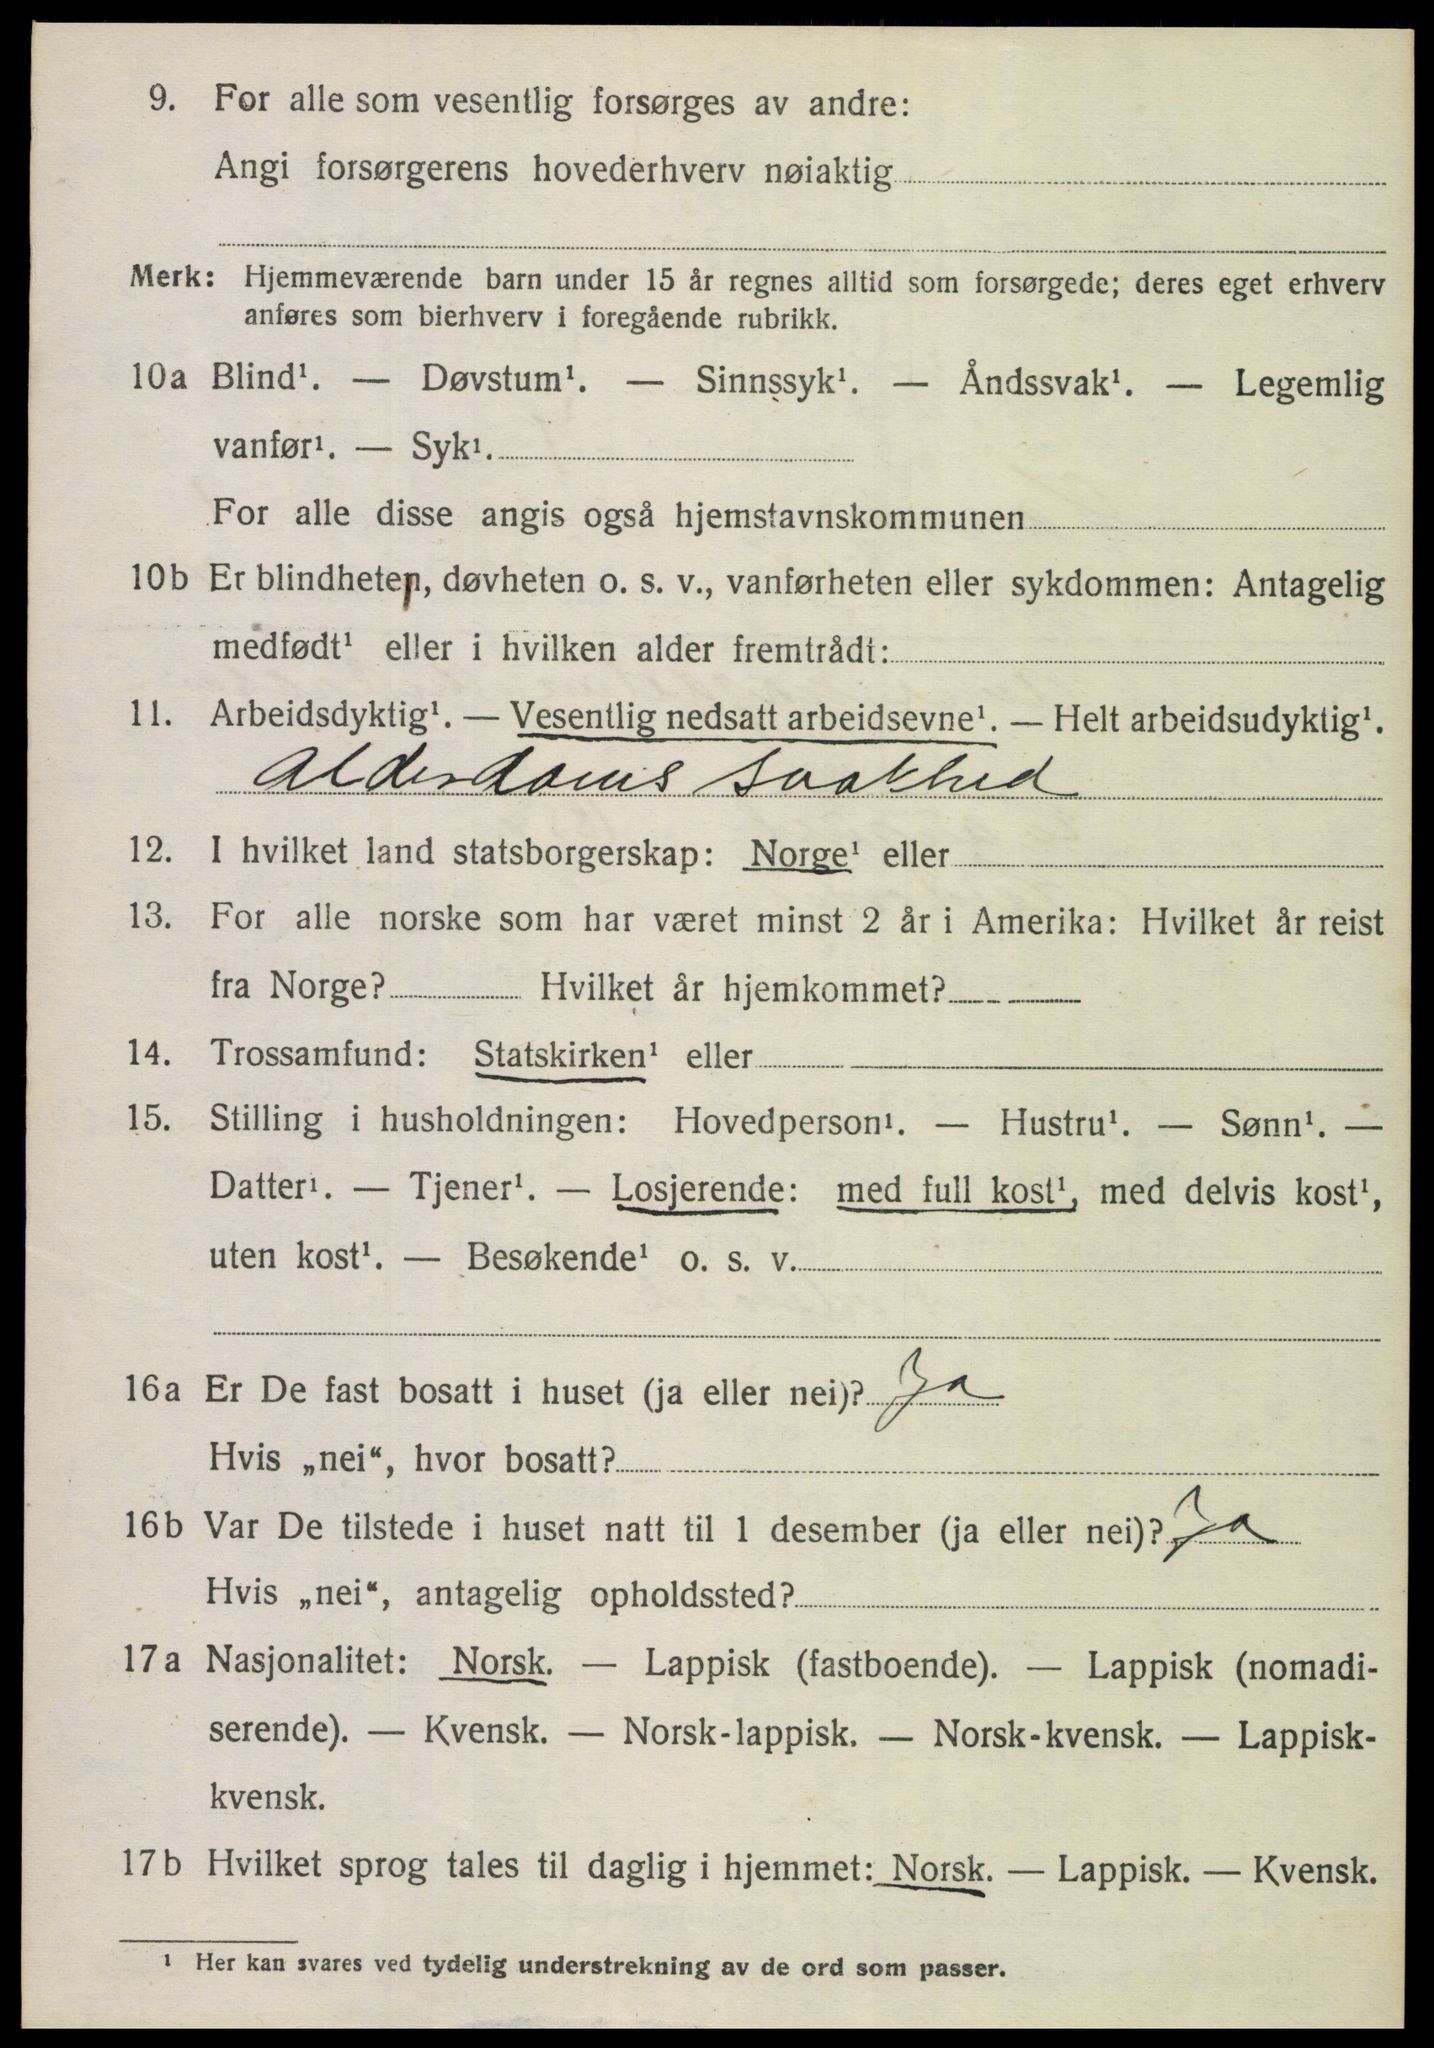 9. For alle som vesentlig forsørges av andre:
Angi forsørgerens hovederhverv nøiaktig
Merk: Hjemmeværende barn under 15 år regnes alltid som forsørgede; deres eget erhverv
anføres som bierhverv i foregående rubrikk.
10a Blind¹. — Døvstum¹. — Sinnssyk¹. — Åndssvak¹. — Legemlig
vanfør¹. — Syk¹.
For alle disse angis også hjemstavnskommunen
10b Er blindheten, døvheten o. s. v., vanførheten eller sykdommen: Antagelig
medfødt¹ eller i hvilken alder fremtrådt:
11. Arbeidsdyktig¹. — Vesentlig nedsatt arbeidsevne¹. — Helt arbeidsudyktig¹.
Alderdoms svakhed
12. I hvilket land statsborgerskap: Norge¹ eller
13. For alle norske som har været minst 2 år i Amerika: Hvilket år reist
fra Norge? Hvilket år hjemkommet?
14. Trossamfund: Statskirken¹ eller
15. Stilling i husholdningen: Hovedperson¹. — Hustru¹. — Sønn¹. —
Datter¹. — Tjener¹. — Losjerende: med full kost¹, med delvis kost¹,
uten kost¹. — Besøkende¹ o. s. v.
16a Er De fast bosatt i huset (ja eller nei)? Ja
Hvis „nei“, hvor bosatt?
16b Var De tilstede i huset natt til 1 desember (ja eller nei)? Ja
Hvis „nei“, antagelig opholdssted?
17a Nasjonalitet: Norsk. — Lappisk (fastboende). — Lappisk (nomadi-
serende). — Kvensk. — Norsk-lappisk. — Norsk-kvensk. — Lappisk-
kvensk.
17b Hvilket sprog tales til daglig i hjemmet: Norsk. — Lappisk. — Kvensk.
¹ Her kan svares ved tydelig understrekning av de ord som passer.